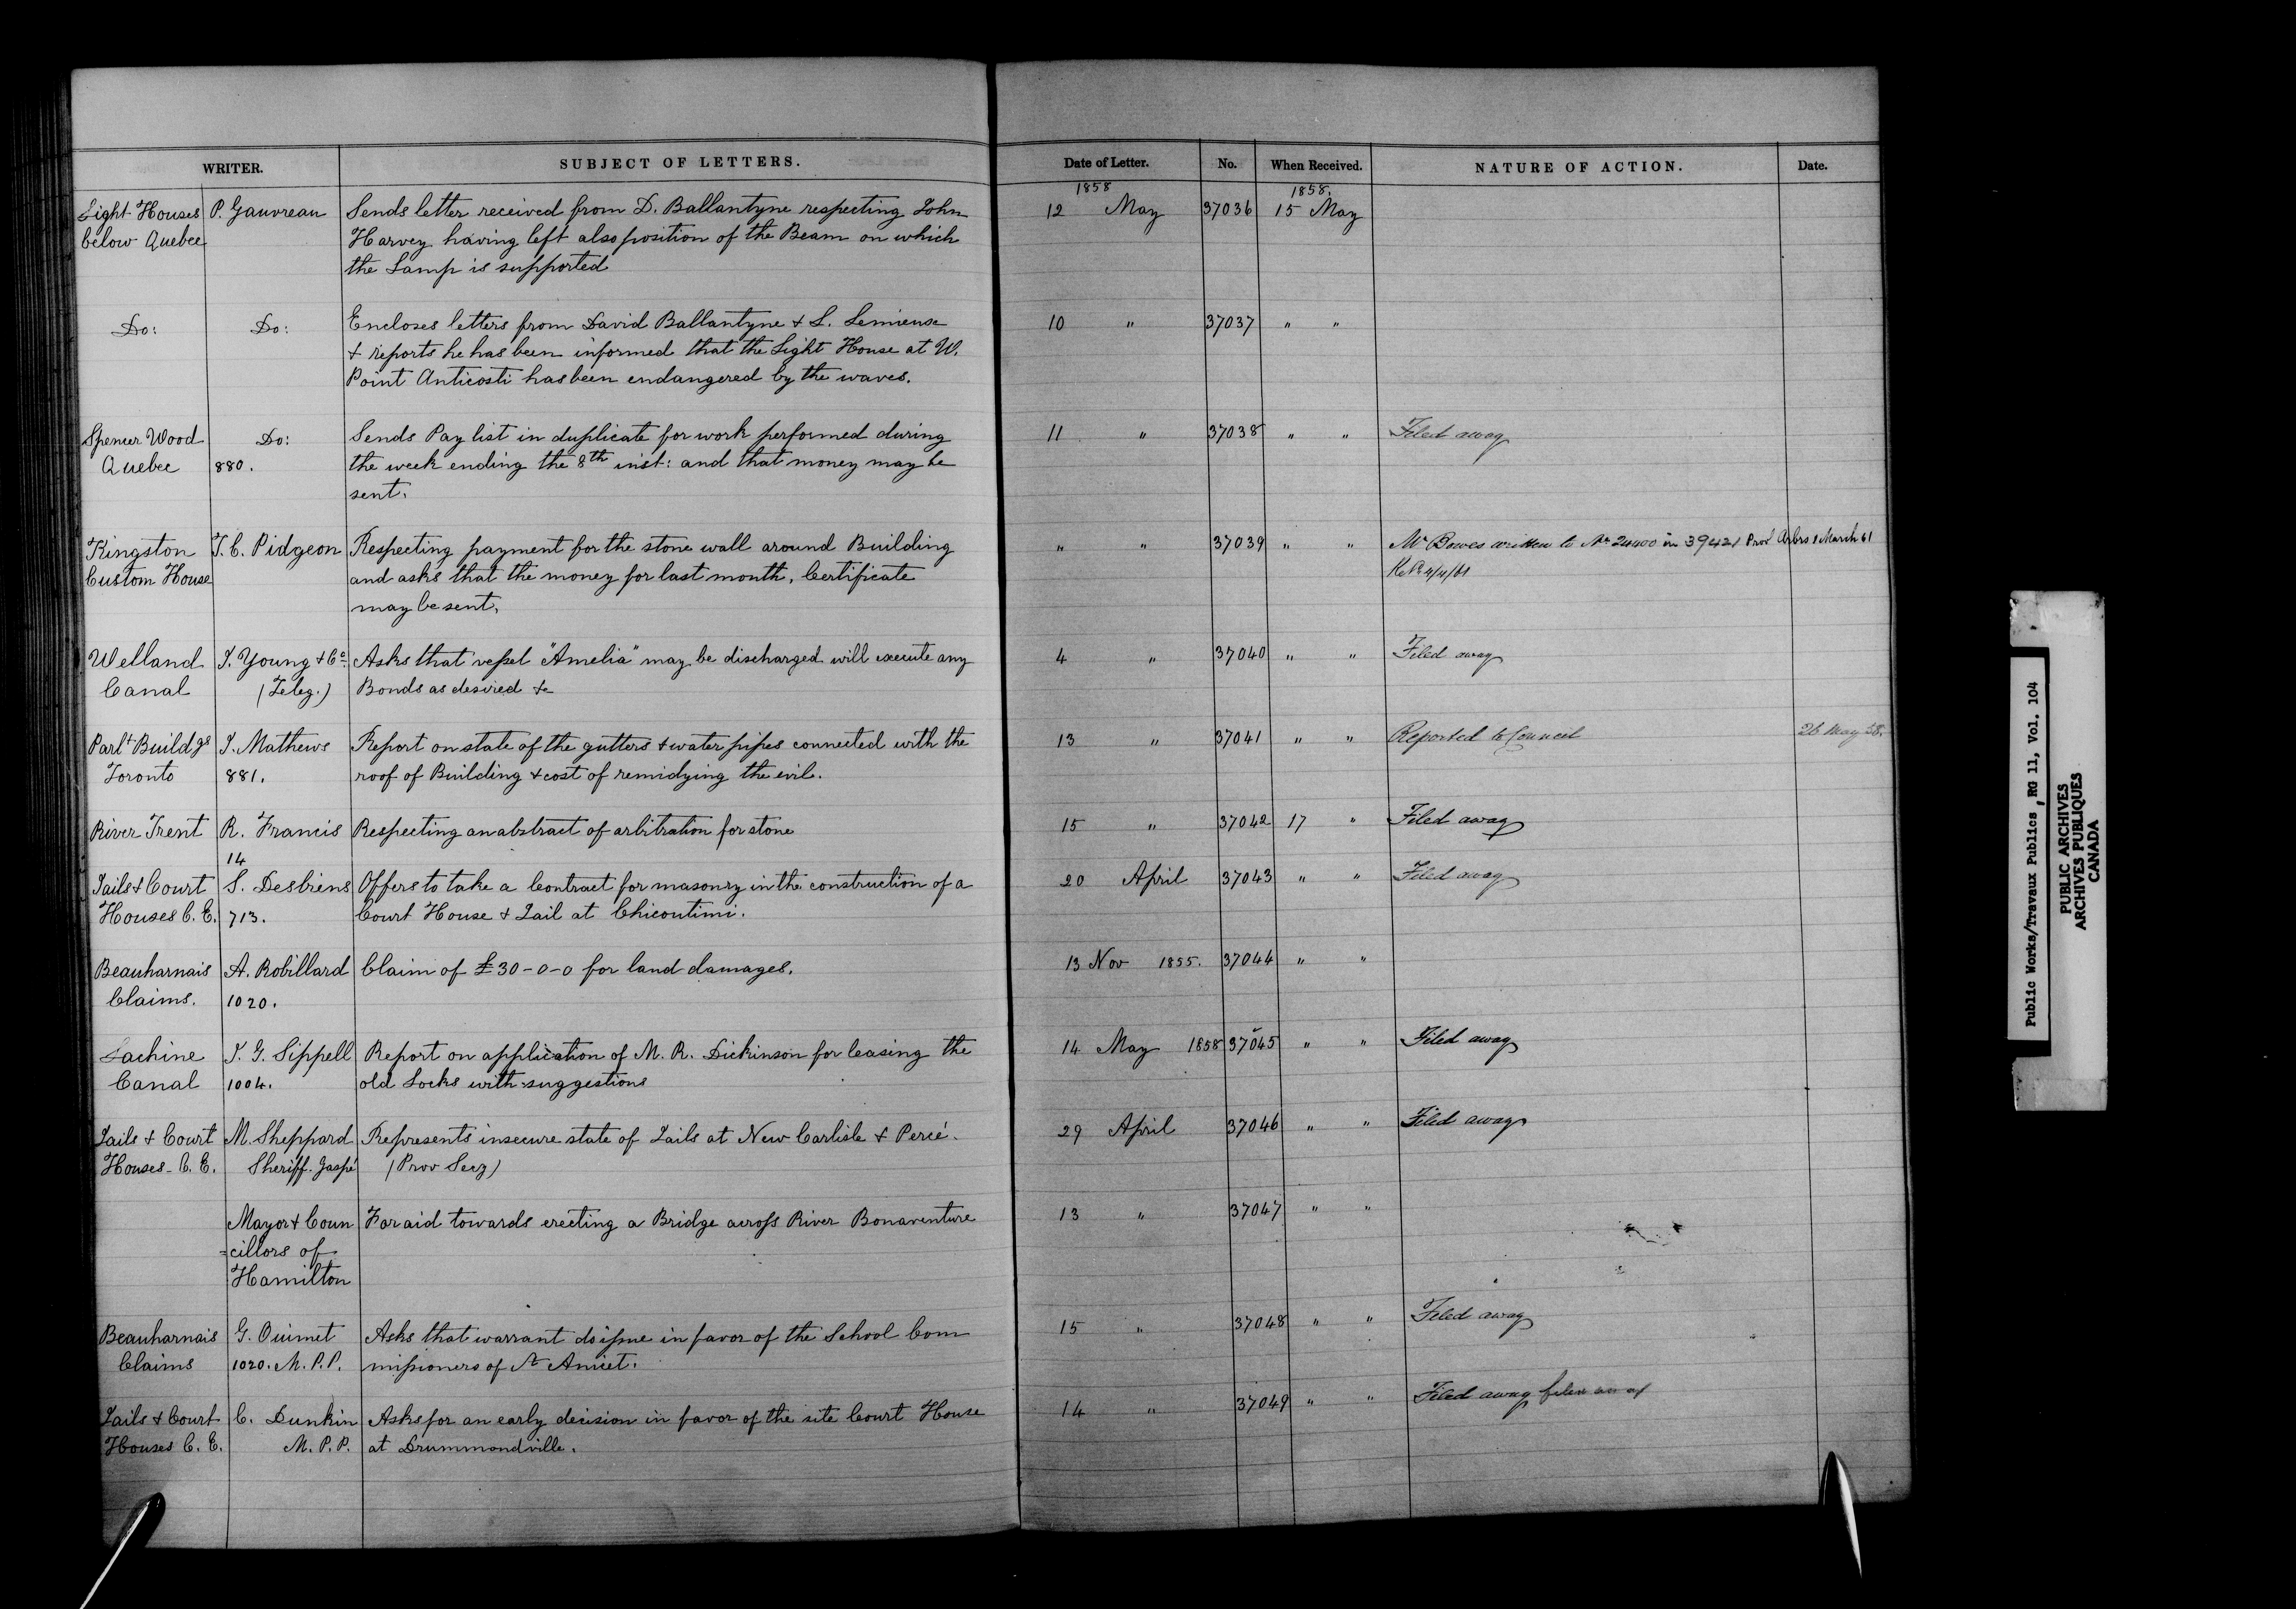 WRITER. SUBJECT OF LETTERS. Date of Letter. No. When Received. NATURE OF ACTION. Date.
1858 1858.
Light Houses P. Gauvreau Sends letter received from D. Ballantyne respecting John 12 May 37036 15 May
below Quebec Harvey having left also position of the Beam on which
the Lamp is supported
Do: Do: Encloses letters from David Ballantyne & L. Lemieuse 10 " 37037 " "
& reports he has been informed that the Light House at W.
Point Anticosti has been endangered by the waves.
Spencer Wood Do: Sends Pay list in duplicate for work performed during 11 " 37038 " " Filed away
Quebec 880. the week ending the 8th inst: and that money may be
sent.
Kingston T. C. Pidgeon Respecting payment for the stone wall around Building " " 37039 " " Mr Bowes written to No 24400 in 39421 Prov Arbrs 1 March 61
Custom House and asks that the money for last month, Certificate 4/4/61
may be sent.
Welland J. Young & Co. Asks that vessel "Amelia" may be discharged will execute any 4 " 37040 " " Filed away
Canal (Teleg.) Bonds as desired &c
Parlt Buildgs J. Mathews Report on state of the gutters & water pipes connected with the 13 " 37041 " " Reported to Council 26 May 58.
Toronto 881. roof of Building & cost of remidying the evil.
River Trent R. Francis Respecting an abstract of arbitration for stone 15 " 37042 17 " Filed away
14
Jails & Court S. Desbiens Offers to take a Contract for masonry in the construction of a 20 April 37043 " " Filed away
Houses C. E. 713. Court House & Jail at Chicoutimi.
Beauharnais A. Robillard Claim of £30-0-0 for land damages. 13 Nov 1855. 37044 " "
Claims. 1020.
Lachine J. G. Sippell Report on application of M. R. Dickinson for leasing the 14 May 1858 37045 " " Filed away
Canal 1004. old Locks with suggestions
Jails & Court M. Sheppard Represents insecure state of Jails at New Carlisle & Percé. 29 April 37046 " " Filed away
Houses - C. E. Sheriff. Gaspé (Prov Secy)
Mayor & Coun For aid towards erecting a Bridge across River Bonaventure 13 " 37047 " "
-cillors of
Hamilton
Beauharnais G. Ouimet Asks that warrant do issue in favor of the School Com 15 " 37048 " " Filed away
Claims 1020. M.P.P. missioners of St Anicet.
Jails & Court C. Dunkin Asks for an early decision in favor of the site Court House 14 " 37049 " " Filed away filed away
Houses C. E. M.P.P. at Drummondville.
Public Works/Travaux Publics, RG 11, Vol. 104
PUBLIC ARCHIVES
ARCHIVES PUBLIQUES
CANADA